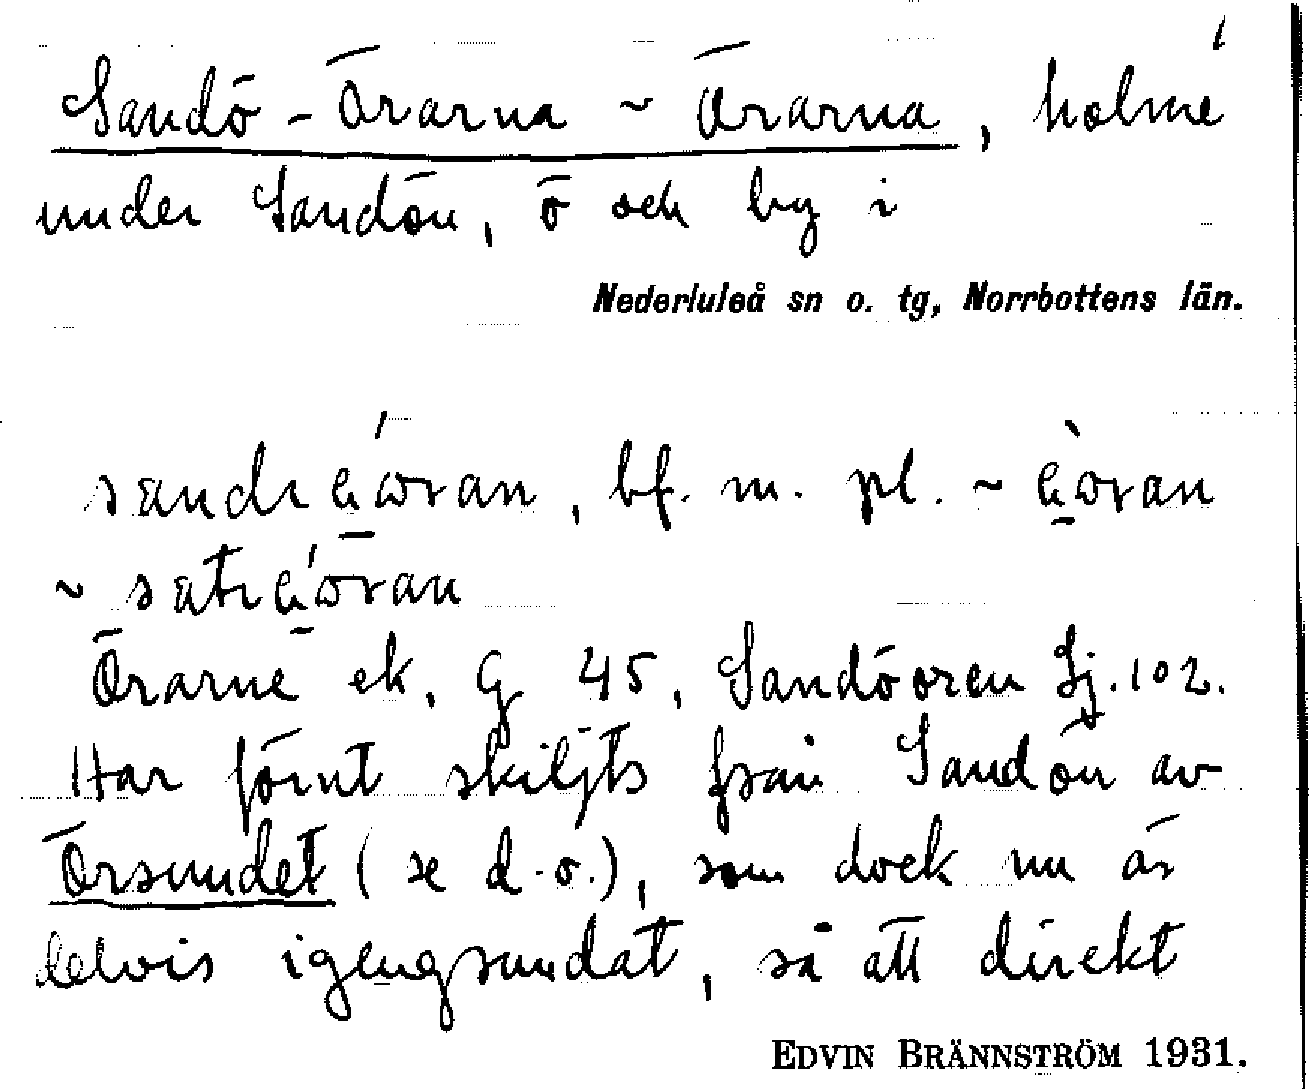 Sandö-Örarna ~ Örarna, holme
under Sandön, ö och by i
Nederluleå sn o. tg, Norrbottens län.
bf. m. pl. ~
~
Örarne ek. G 45, Sandöören Sj. 102.
Har förut skiljts från Sandön av
Örsundet (se d. o.), som dock nu är
delvis igengrundat, så att direkt
EDVIN BRÄNNSTRÖM 1931.